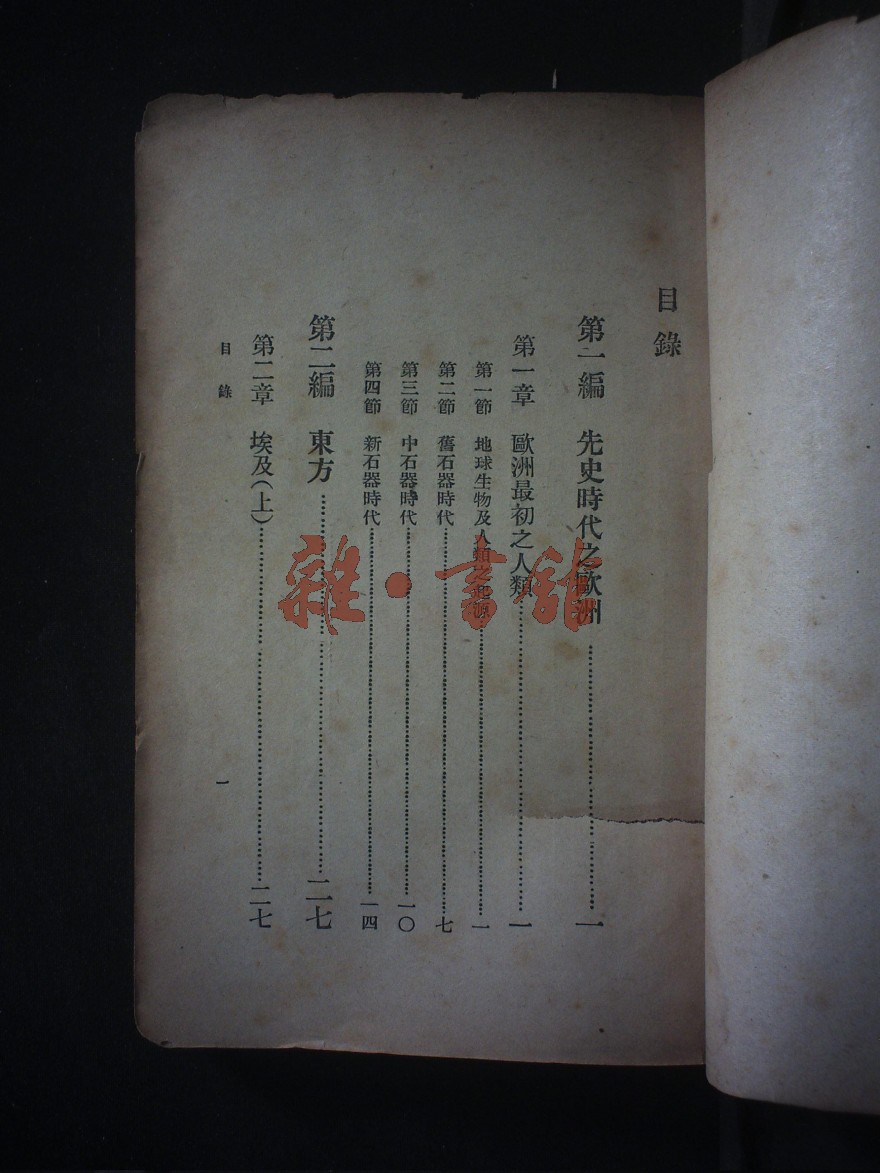 目錄
第一編 先史時代之歐洲……一
第一章 歐洲最初之人類……一
第一節 地球生物及人類之起源……一
第二節 舊石器時代……七
第三節 中石器時代……一〇
第四節 新石器時代……一四
第二編 東方……二七
第二章 埃及(上)……二七
目錄
一
雜·書館